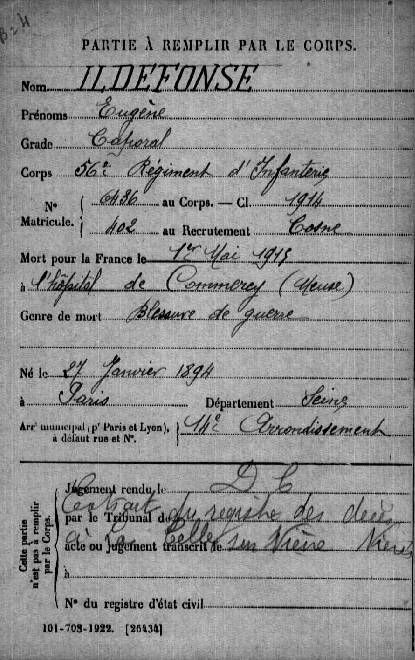 PARTIE À REMPLIR PAR LE CORPS.
Nom ILDEFONSE
Prénoms Eugène
Grade Caporal
Corps 56e Régiment d'Infanterie
N° Matricule. { 6436 au Corps. — Cl. 1914
402 au Recrutement Cosne
Mort pour la France le 1er Mai 1915
à l'hôpital de Commercy (Meuse)
Genre de mort Blessure de guerre
Né le 27 Janvier 1894
à Paris Département Seine
Arrt municipal (pr Paris et Lyon), à défaut rue et N°. } 14e Arrondissement
Cette partie n'est pas à remplir par le Corps.
Jugement rendu le D C
Extrait du registre des décès
par le Tribunal de
à la Celle sur Nièvre
acte ou jugement transcrit le
à
N° du registre d'état civil
101-708-1922. [26434]